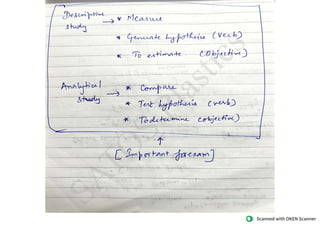 Descriptive study → * Measure
* Generate hypothesis (verb)
* To estimate (objective)
Analytical study → * Compare
* Test hypothesis (verb)
* To determine (objective)
↑
[Important for exam]
Scanned with OKEN Scanner